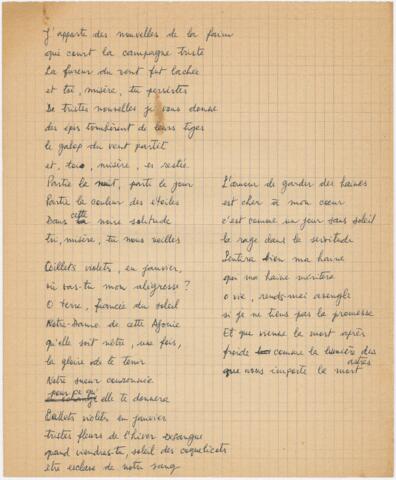 J'apporte des nouvelles de la faim
qui court la campagne triste
La fureur du vent fut lachée
et toi, misère, tu persistes
De tristes nouvelles je vous donne
des épis tombèrent de leurs tiges
le galop du vent partit
et, toi, misère, es restée
Partie la nuit, parti le jour
Partie la couleur des étoiles
Dans cette noire solitude
tu, misère, tu nous veilles
Œillets violets, en janvier,
où vas-tu mon allégresse ?
O terre, fiancée du soleil
Notre-Dame de cette Agonie
qu'elle soit nôtre, une fois,
la gloire de te tenir
Notre sueur couronnée
pour ce qu'
elle te donnera
Œillets violets en janvier
tristes fleurs de l'hiver
quand viendras-tu, soleil des coquelicots
être esclave de notre sang
L'amour de garder des haines
est cher à mon cœur
c'est comme un jour sans soleil
la rage dans la servitude
Sentira bien ma haine
qui ma haine méritera
o vie, rends-moi aveugle
si je ne tiens pas la promesse
Et que vienne la mort après
froide comme la lumière des
astres
que nous importe la mort